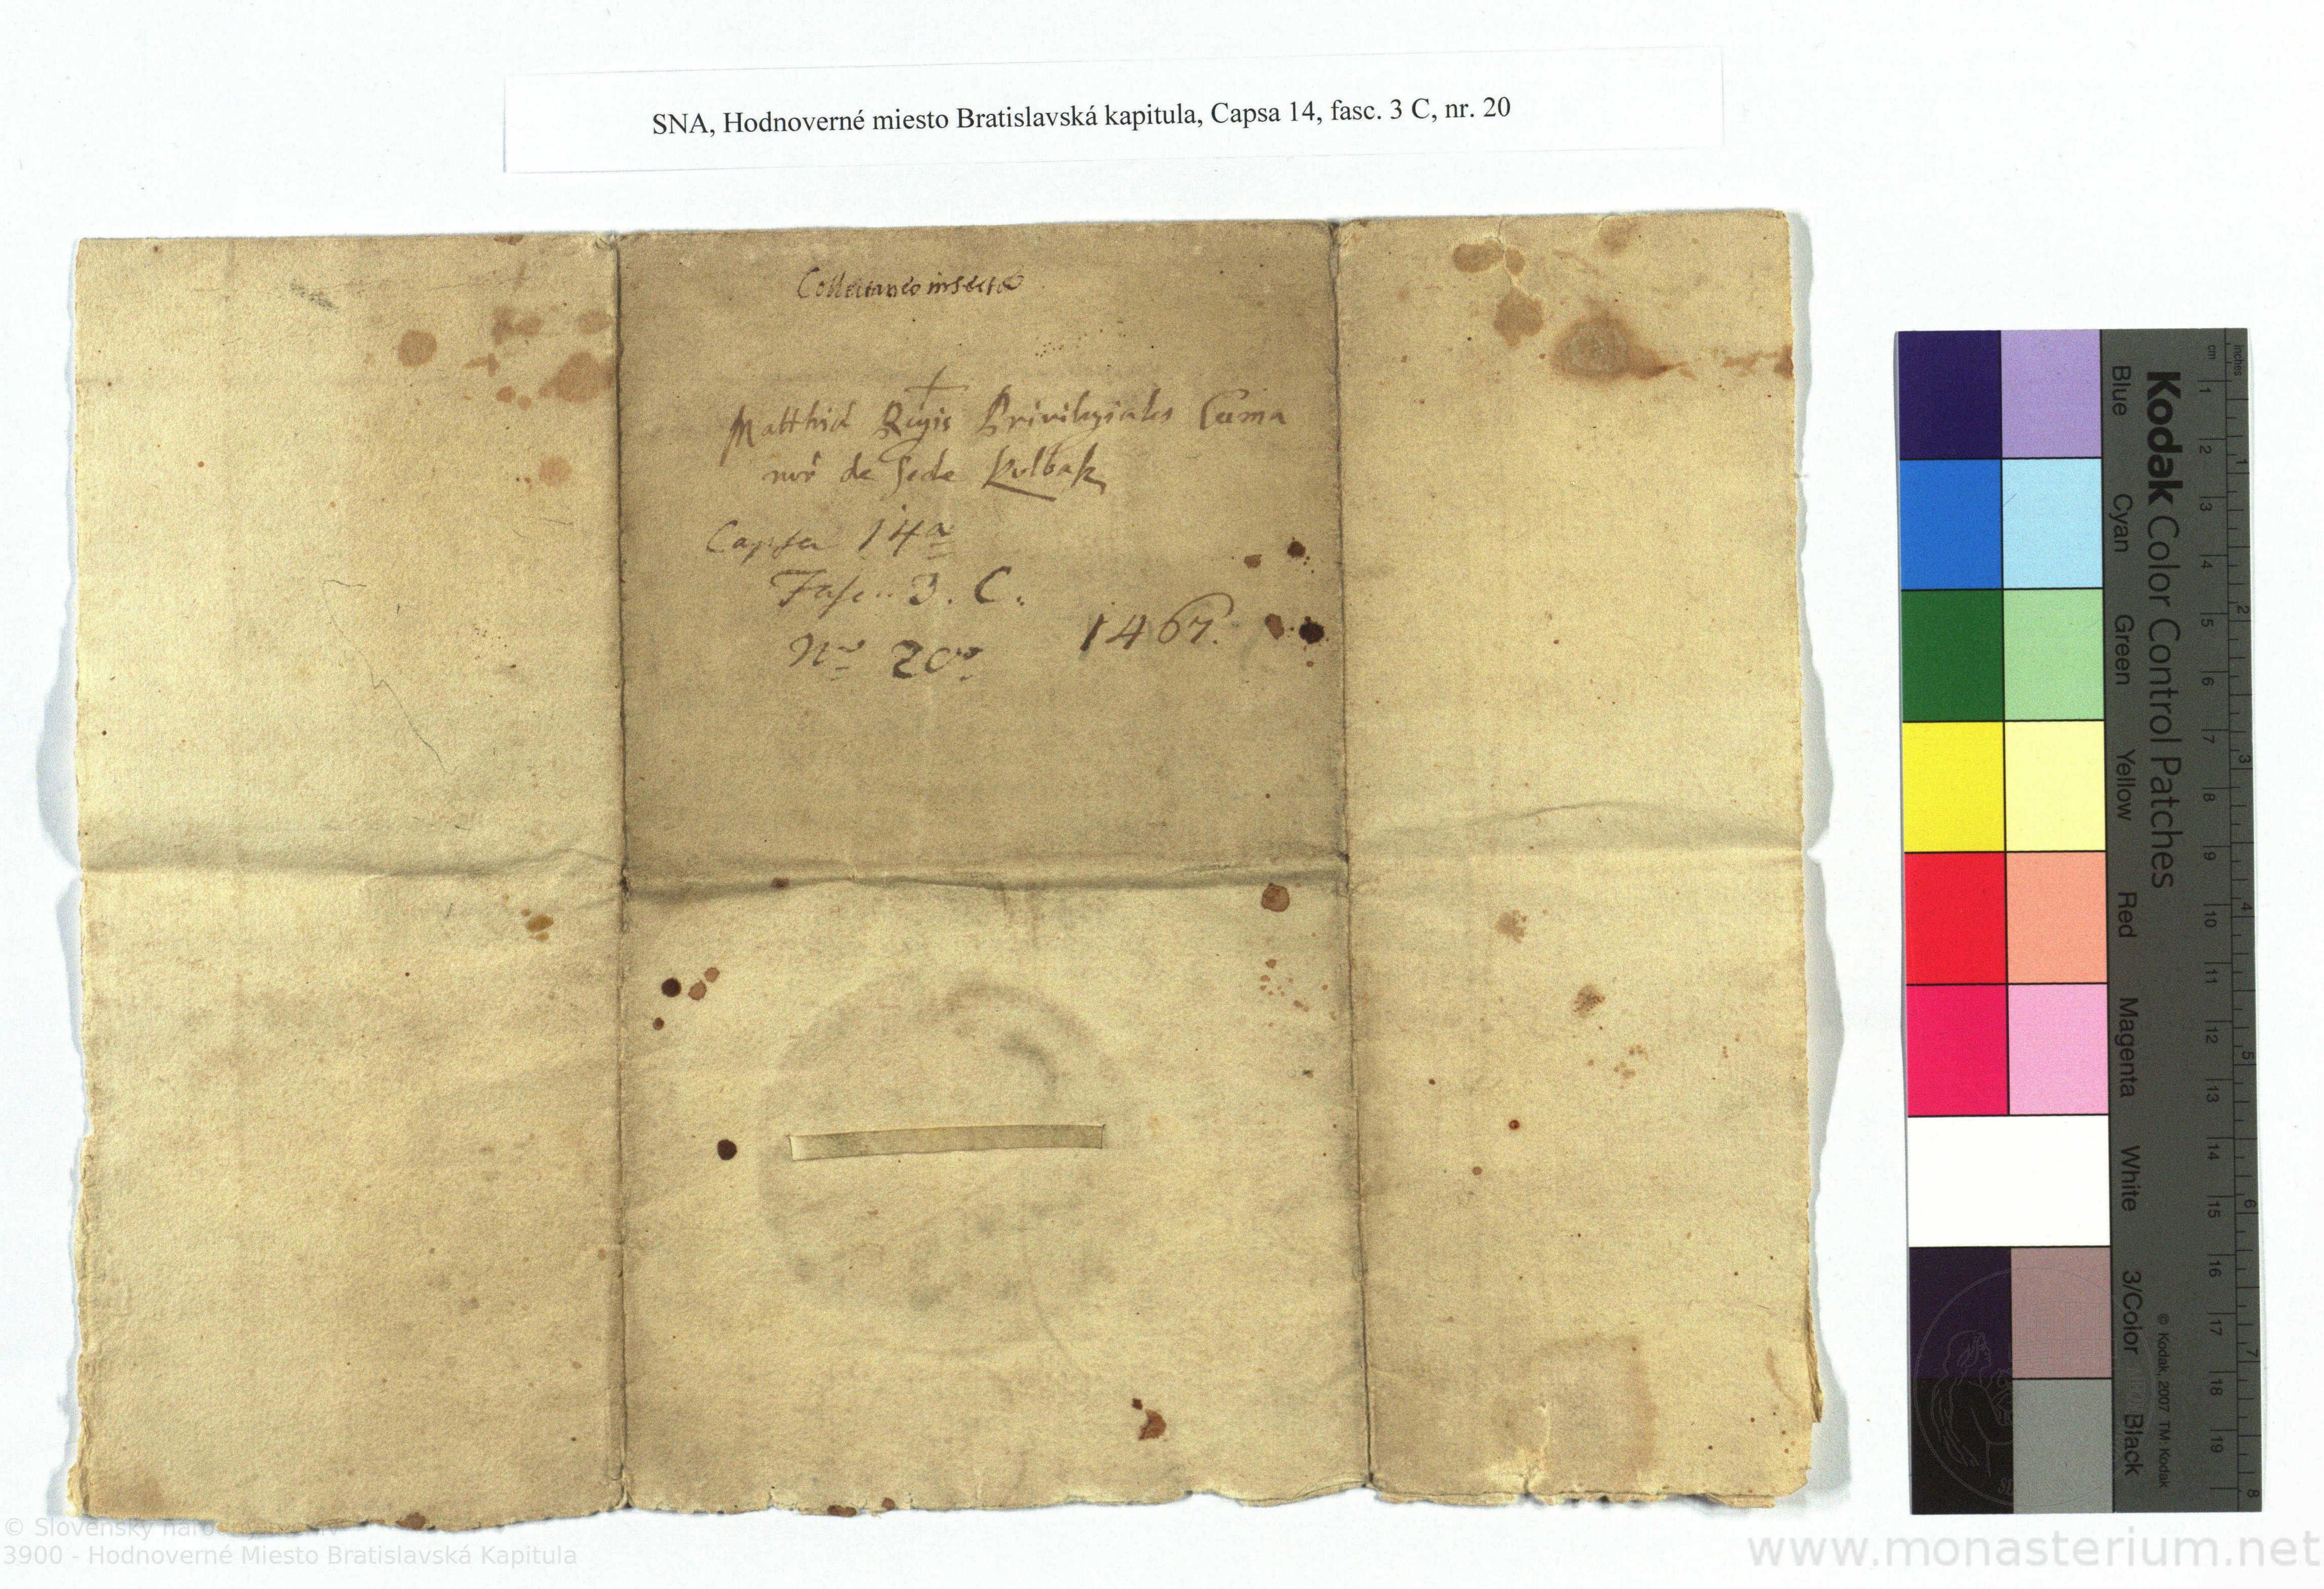 SNA, Hodnoverné miesto Bratislavská kapitula, Capsa 14, fasc. 3 C, nr. 20
Matthiæ Regis Privilegiales Cuma
nor̃ de Sede Kolbaz
Capsa 14a
Fasc. 3. C.
Nro 20o
1467.
Kodak Color Control Patches
Blue Cyan Green Yellow Red Magenta White 3/Color Black
© Kodak, 2007 TM: Kodak
cm 1 2 3 4 5 6 7 8 9 10 11 12 13 14 15 16 17 18 19
inches 1 2 3 4 5 6 7 8
© Slovenský národný archív
3900 - Hodnoverné Miesto Bratislavská Kapitula
www.monasterium.net